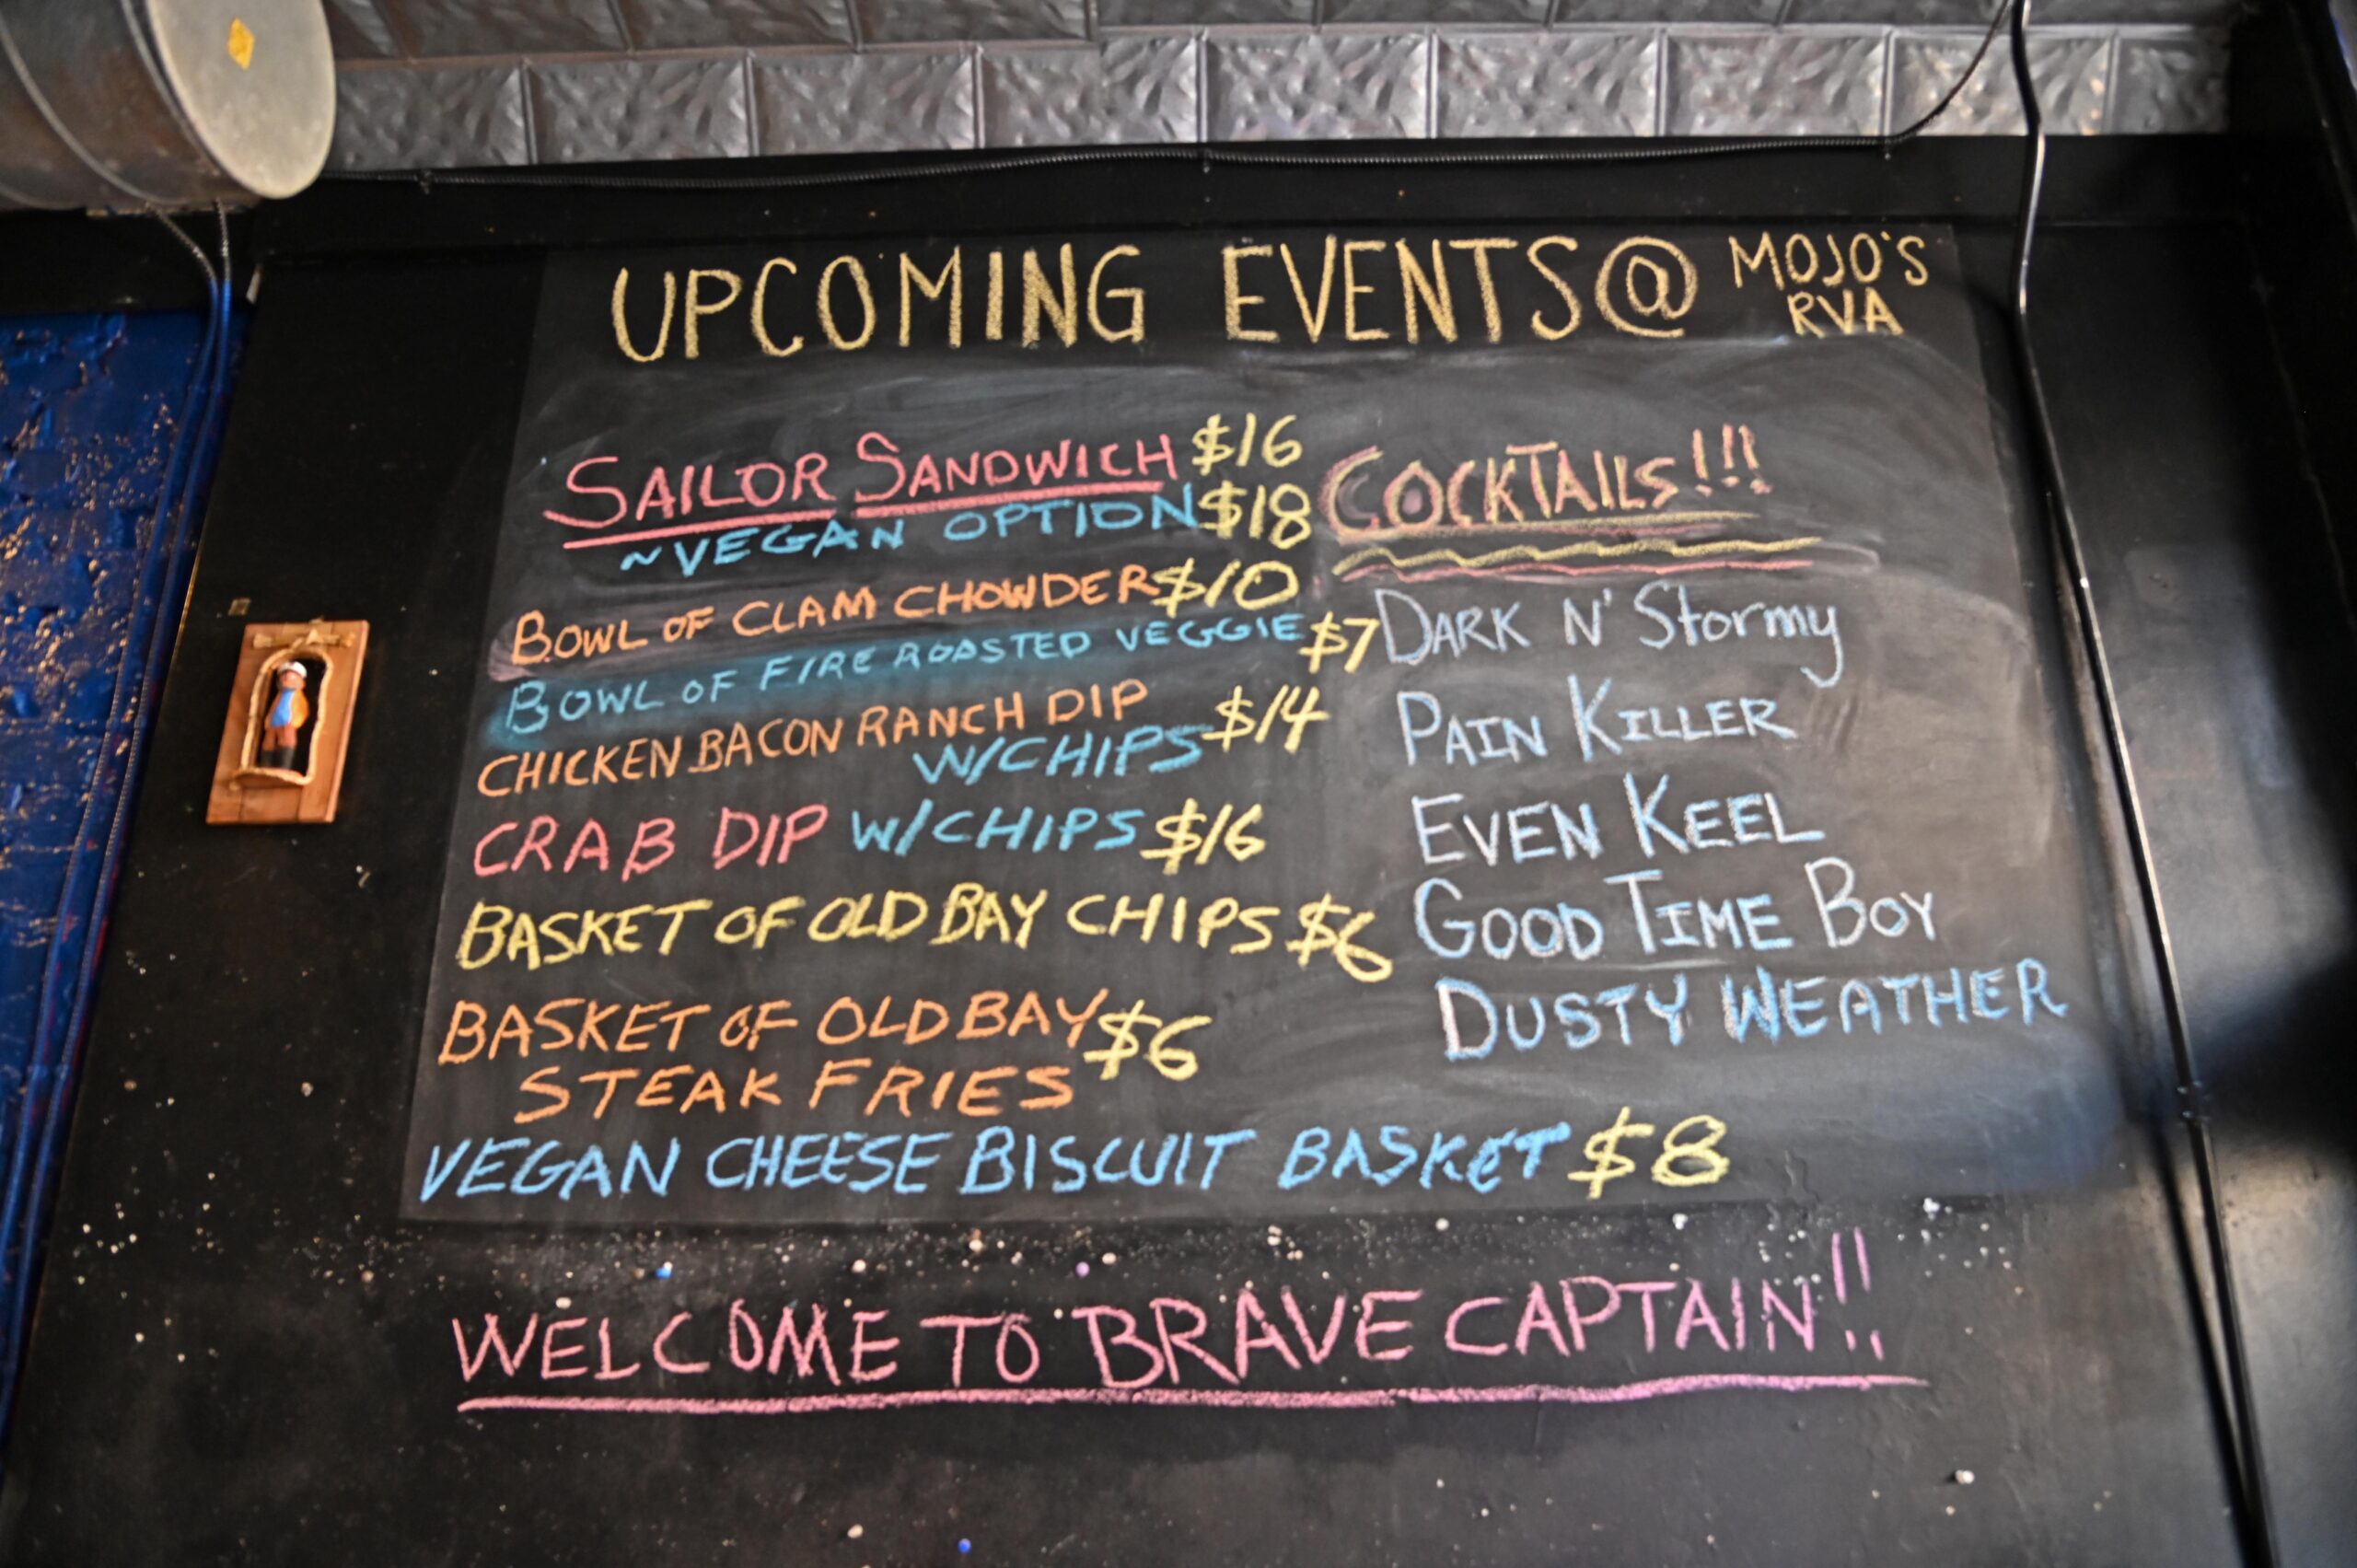 UPCOMING EVENTS @ MOJO'S
RVA
SAILOR SANDWICH $16
~VEGAN OPTION $18
BOWL OF CLAM CHOWDER $10
BOWL OF FIRE ROASTED VEGGIE $7
CHICKEN BACON RANCH DIP
W/CHIPS $14
CRAB DIP W/CHIPS $16
BASKET OF OLD BAY CHIPS $6
BASKET OF OLD BAY $6
STEAK FRIES
VEGAN CHEESE BISCUIT BASKET $8
COCKTAILS!!!
DARK N' Stormy
PAIN KILLER
EVEN KEEL
GOOD TIME BOY
DUSTY WEATHER
WELCOME TO BRAVE CAPTAIN!!